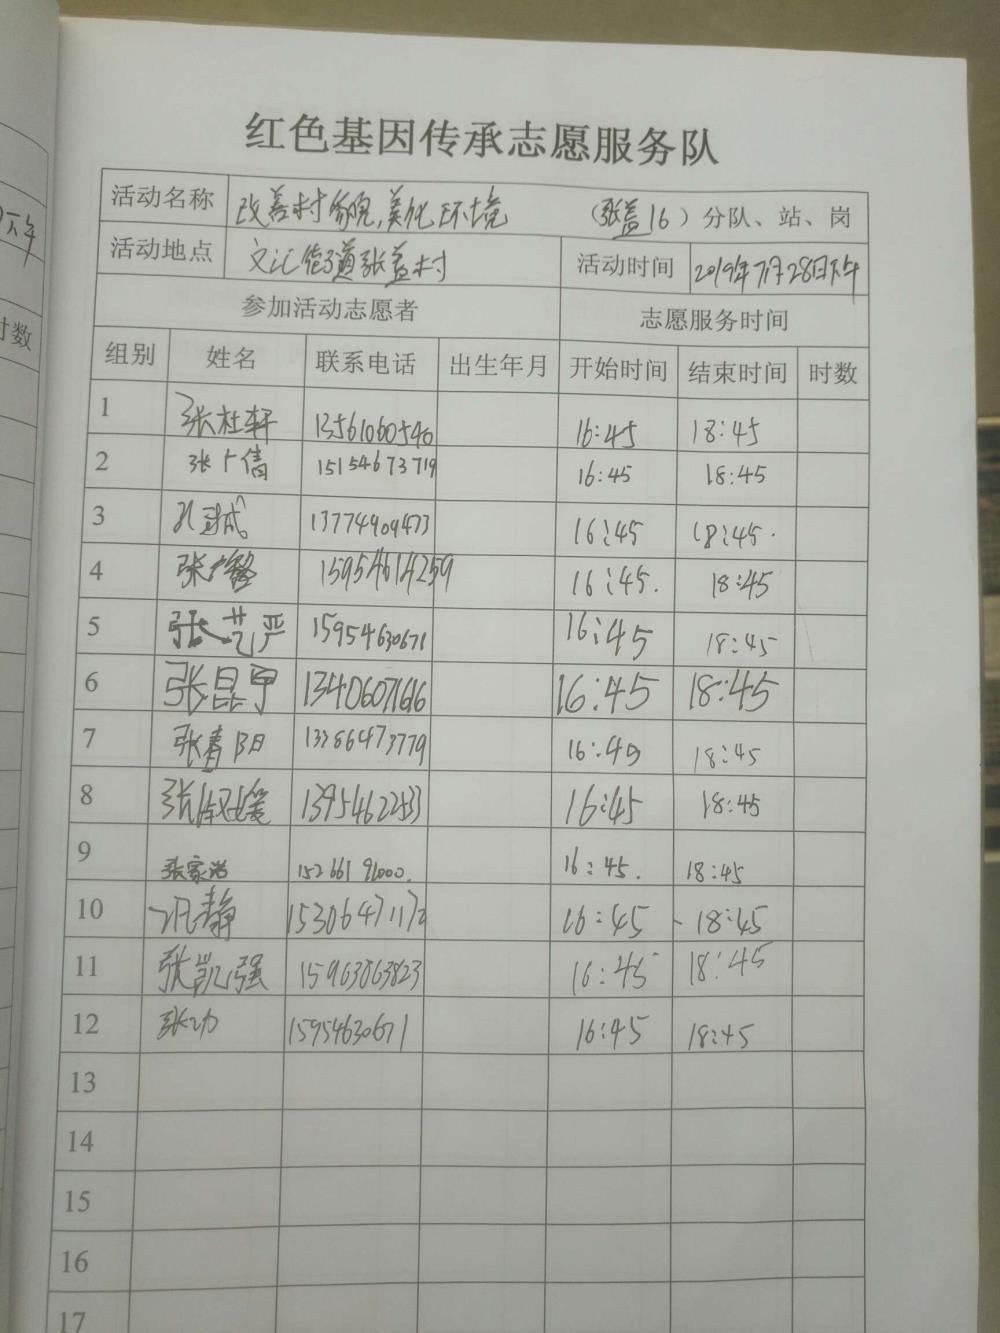 红色基因传承志愿服务队
活动名称 改善村容貌,美化环境 (张盖16)分队、站、岗
活动地点 文汇街道张盖村 活动时间 2019年7月28日下午
参加活动志愿者 志愿服务时间
组别 姓名 联系电话 出生年月 开始时间 结束时间 时数
1 张杜轩 13561060540 16:45 18:45
2 张广倩 15154673719 16:45 18:45
3 13774909473 16:45 18:45
4 张 15954614259 16:45. 18:45
5 张艺严 15954630671 16:45 18:45
6 张昆甲 13406071616 16:45 18:45
7 张春阳 13386473779 16:45 18:45
8 张 13954622533 16:45 18:45
9 张家 15266191000. 16:45. 18:45
10 静 15306471172 16:45 18:45
11 张凯强 15963863823 16:45 18:45
12 张功 15954630671 16:45 18:45
13
14
15
16
17
下午
时数